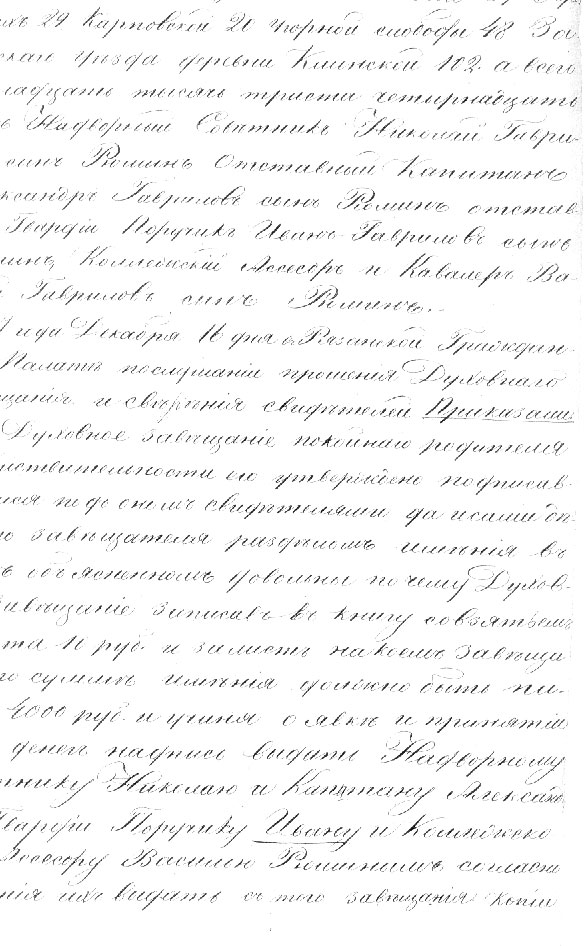 хъ 29 Карповской 20 Чорной слободы 48 За
скаго уезда деревни Клинской 102. а всего
надцать тысячь триста четырнадцать
ъ Надворный Советникъ Николай Гаври
сынъ Рюминъ Отставный Капитанъ
ксандръ Гавриловъ сынъ Рюминъ отстав
Гвардіи Поручикъ Иванъ Гавриловъ сынъ
минъ, Коллежскій Ассесоръ и Кавалеръ Ва
й Гавриловъ сынъ Рюминъ.
года Декабря 16 дня въ Рязанской Граждан
Палатѣ послушаніи прошенія Духовнаго
щанія и свѣрѣнія свидѣтелей Приказали
Духовное завѣщаніе покойнаго родителя
йствительности его утверждено подписав
мися подъ онымъ свидѣтелями да и сами они
ю завѣщателя раздѣломъ имѣнія въ
ъ объясненномъ довольны почему Духов
завѣщаніе записавъ въ книгу со взятьемъ
та 10 руб. и залистъ на коемъ завѣща
го суммѣ имѣнія должно быть пи-
4000 руб. и учиня о явкѣ и принятіи
денегъ надпись выдать Надворному
тнику Николаю и Капитану Алексан
Гвардіи Поручику Ивану и Коллежско
Ассесору Василію Рюминымъ согласно
нія ихъ выдать съ того завѣщанія копіи